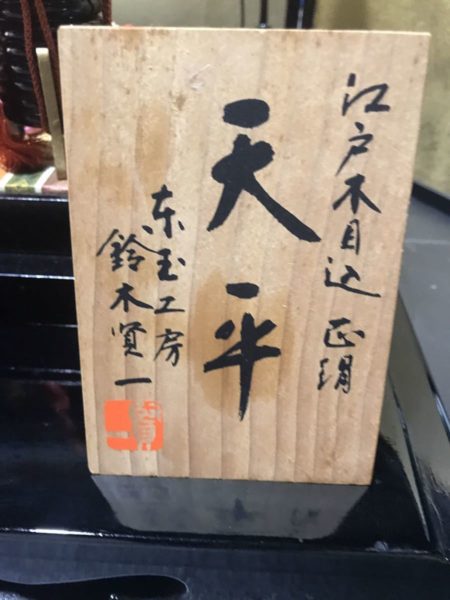 江戸木目込 正絹
天平
东玉工房
鈴木賢一